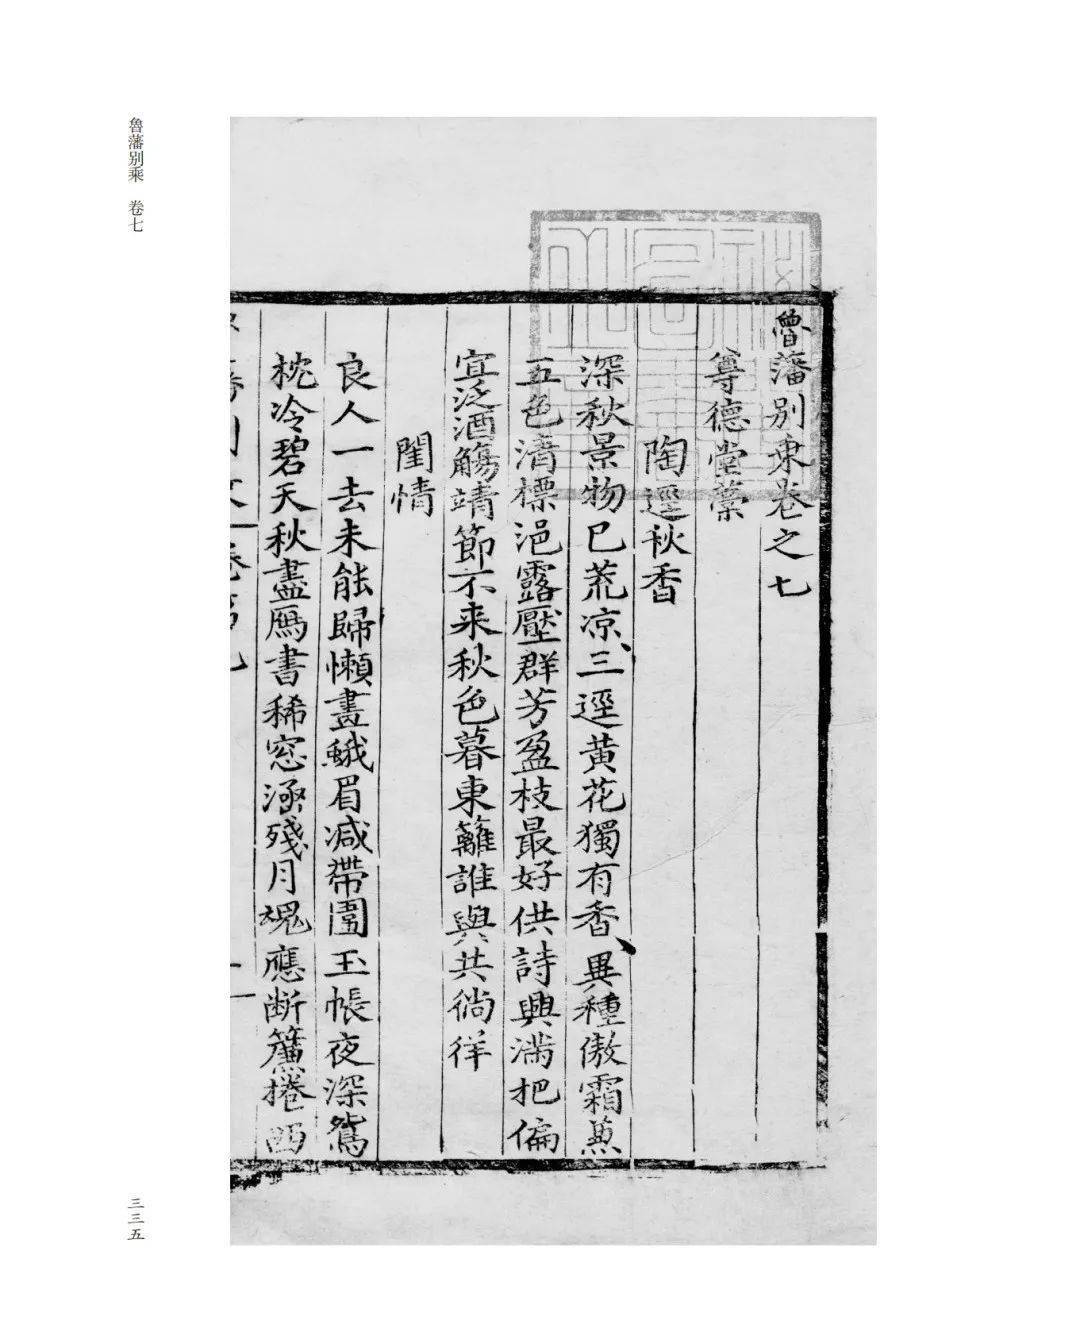 魯藩别乘卷之七
尊德堂藁
陶逕秋香
深秋景物已荒凉三逕黄花獨有香異種傲霜兼
五色清標浥露壓群芳盈枝最好供詩興满把偏
宜泛酒觴靖節不来秋色暮東籬誰與共徜徉
閨情
良人一去未能歸懶畫蛾眉减帶圍玉帳夜深鴛
枕冷碧天秋盡鴈書稀窓涵殘月魂應断簾捲西
魯藩别乘　卷七
三三五